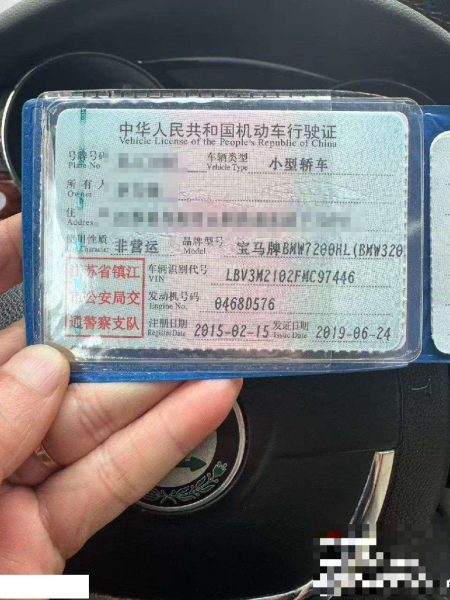 中华人民共和国机动车行驶证
Vehicle License of the People's Republic of China
号牌号码 车辆类型 小型轿车
Plate No. Vehicle Type
所有人
Owner
住
Address
使用性质 非营运 品牌型号 宝马牌BMW7200HL(BMW320
Character Model
江苏省镇江 车辆识别代号 LBV3M2102FMC97446
VIN
市公安局交 发动机号码 0468D576
Engine No.
通警察支队 注册日期 2015-02-15 发证日期 2019-06-24
Register Date Issue Date